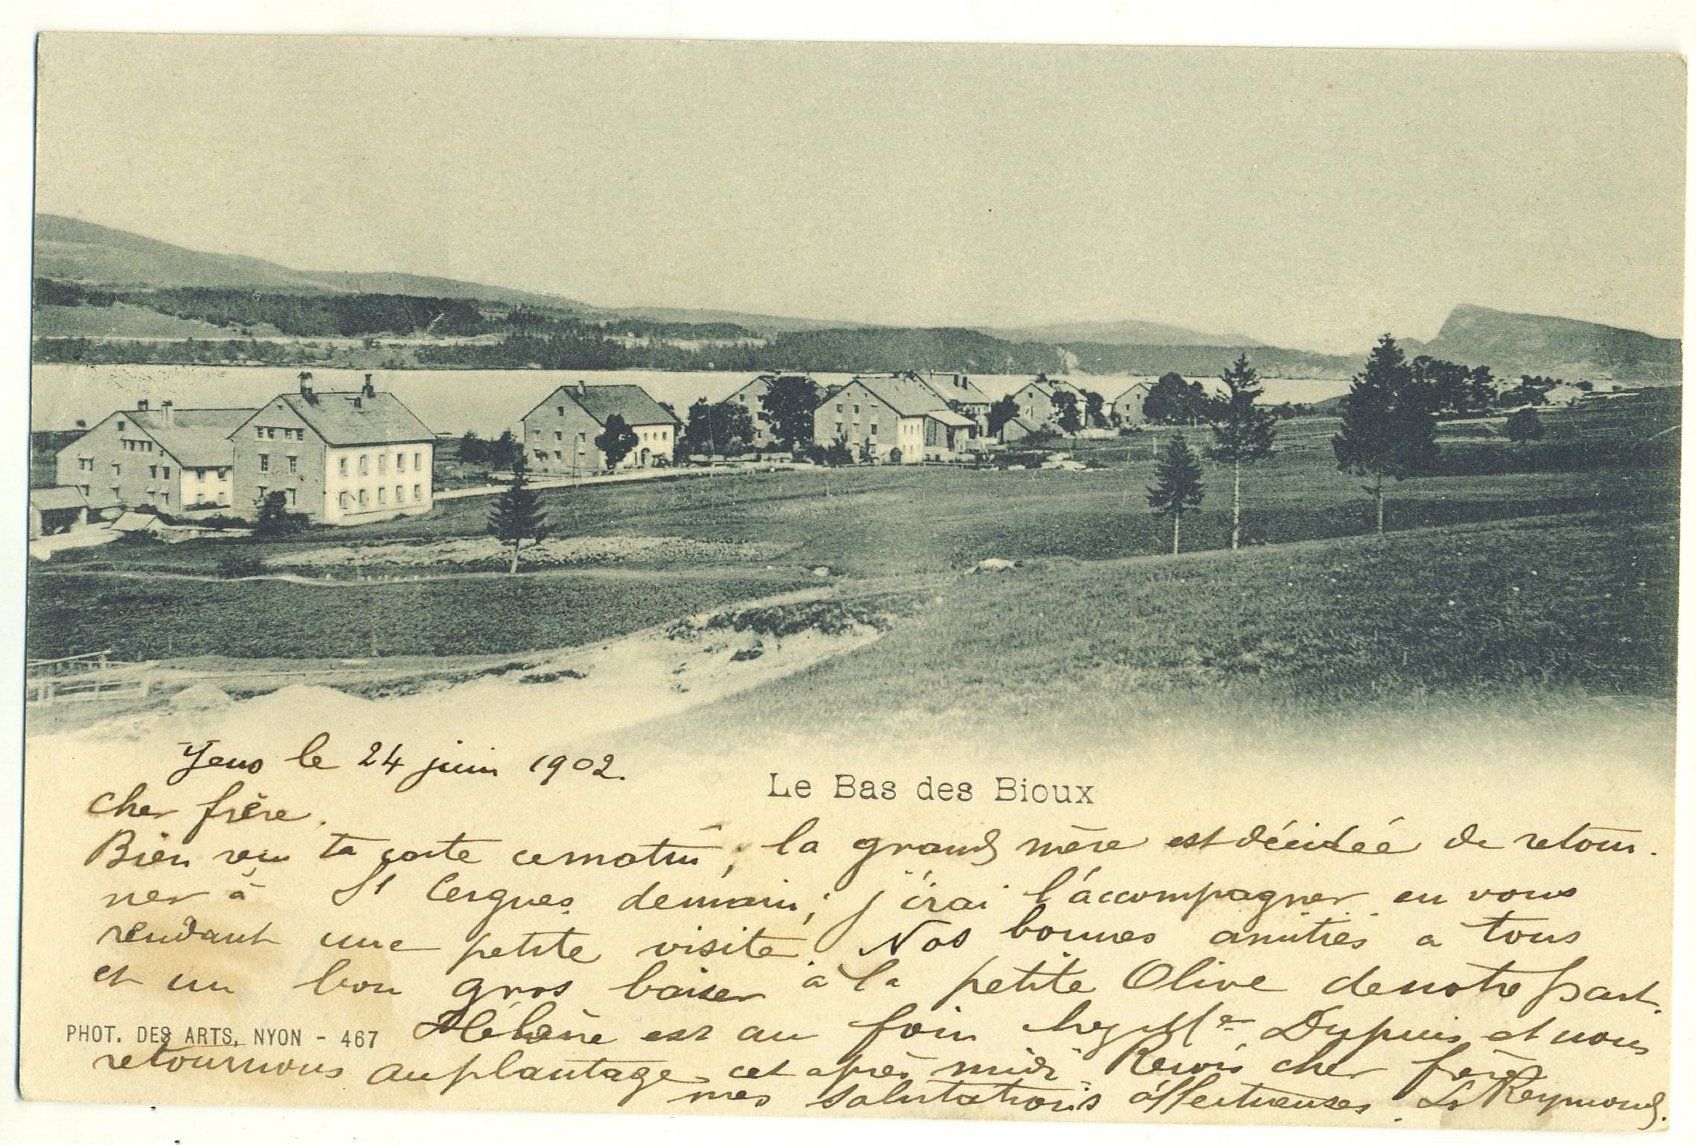 le 24 juin 1902.
Le Bas des Bioux
cher frère.
Bien reçu ta carte ce matin, la grand mère est décidée de retour.
ner à St Cergues demain; j'irai l'accompagner en vous
rendant une petite visite. Nos bonnes amitiés a tous
et un bon gros baiser à la petite Olive de notre part.
PHOT. DES ARTS, NYON - 467
Hélène est au foin chez Dupuis et nous
retournons au plantage cet après midi Reçois cher frère
mes salutations affectueuses. Ls Reymond.